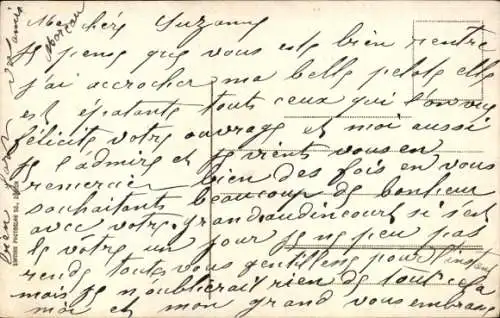 Ma chère Suzanne
Je pense que vous est bien rentré
j'ai accrocher ma belle pelote elle
est épatante tout ceux qui l'on vue
félicite votre ouvrage et moi aussi
je l'admire et je vient vous en
remercier bien des fois en vous
souhaitant beaucoup de bonheur
avec votre grand audincourt si s'est
le vôtre un jour je ne peu pas
rendre toutes vous gentilless pour l'instant
mais je n'oublierait rien de tout cela
moi et mon grand vous embrasse
bien